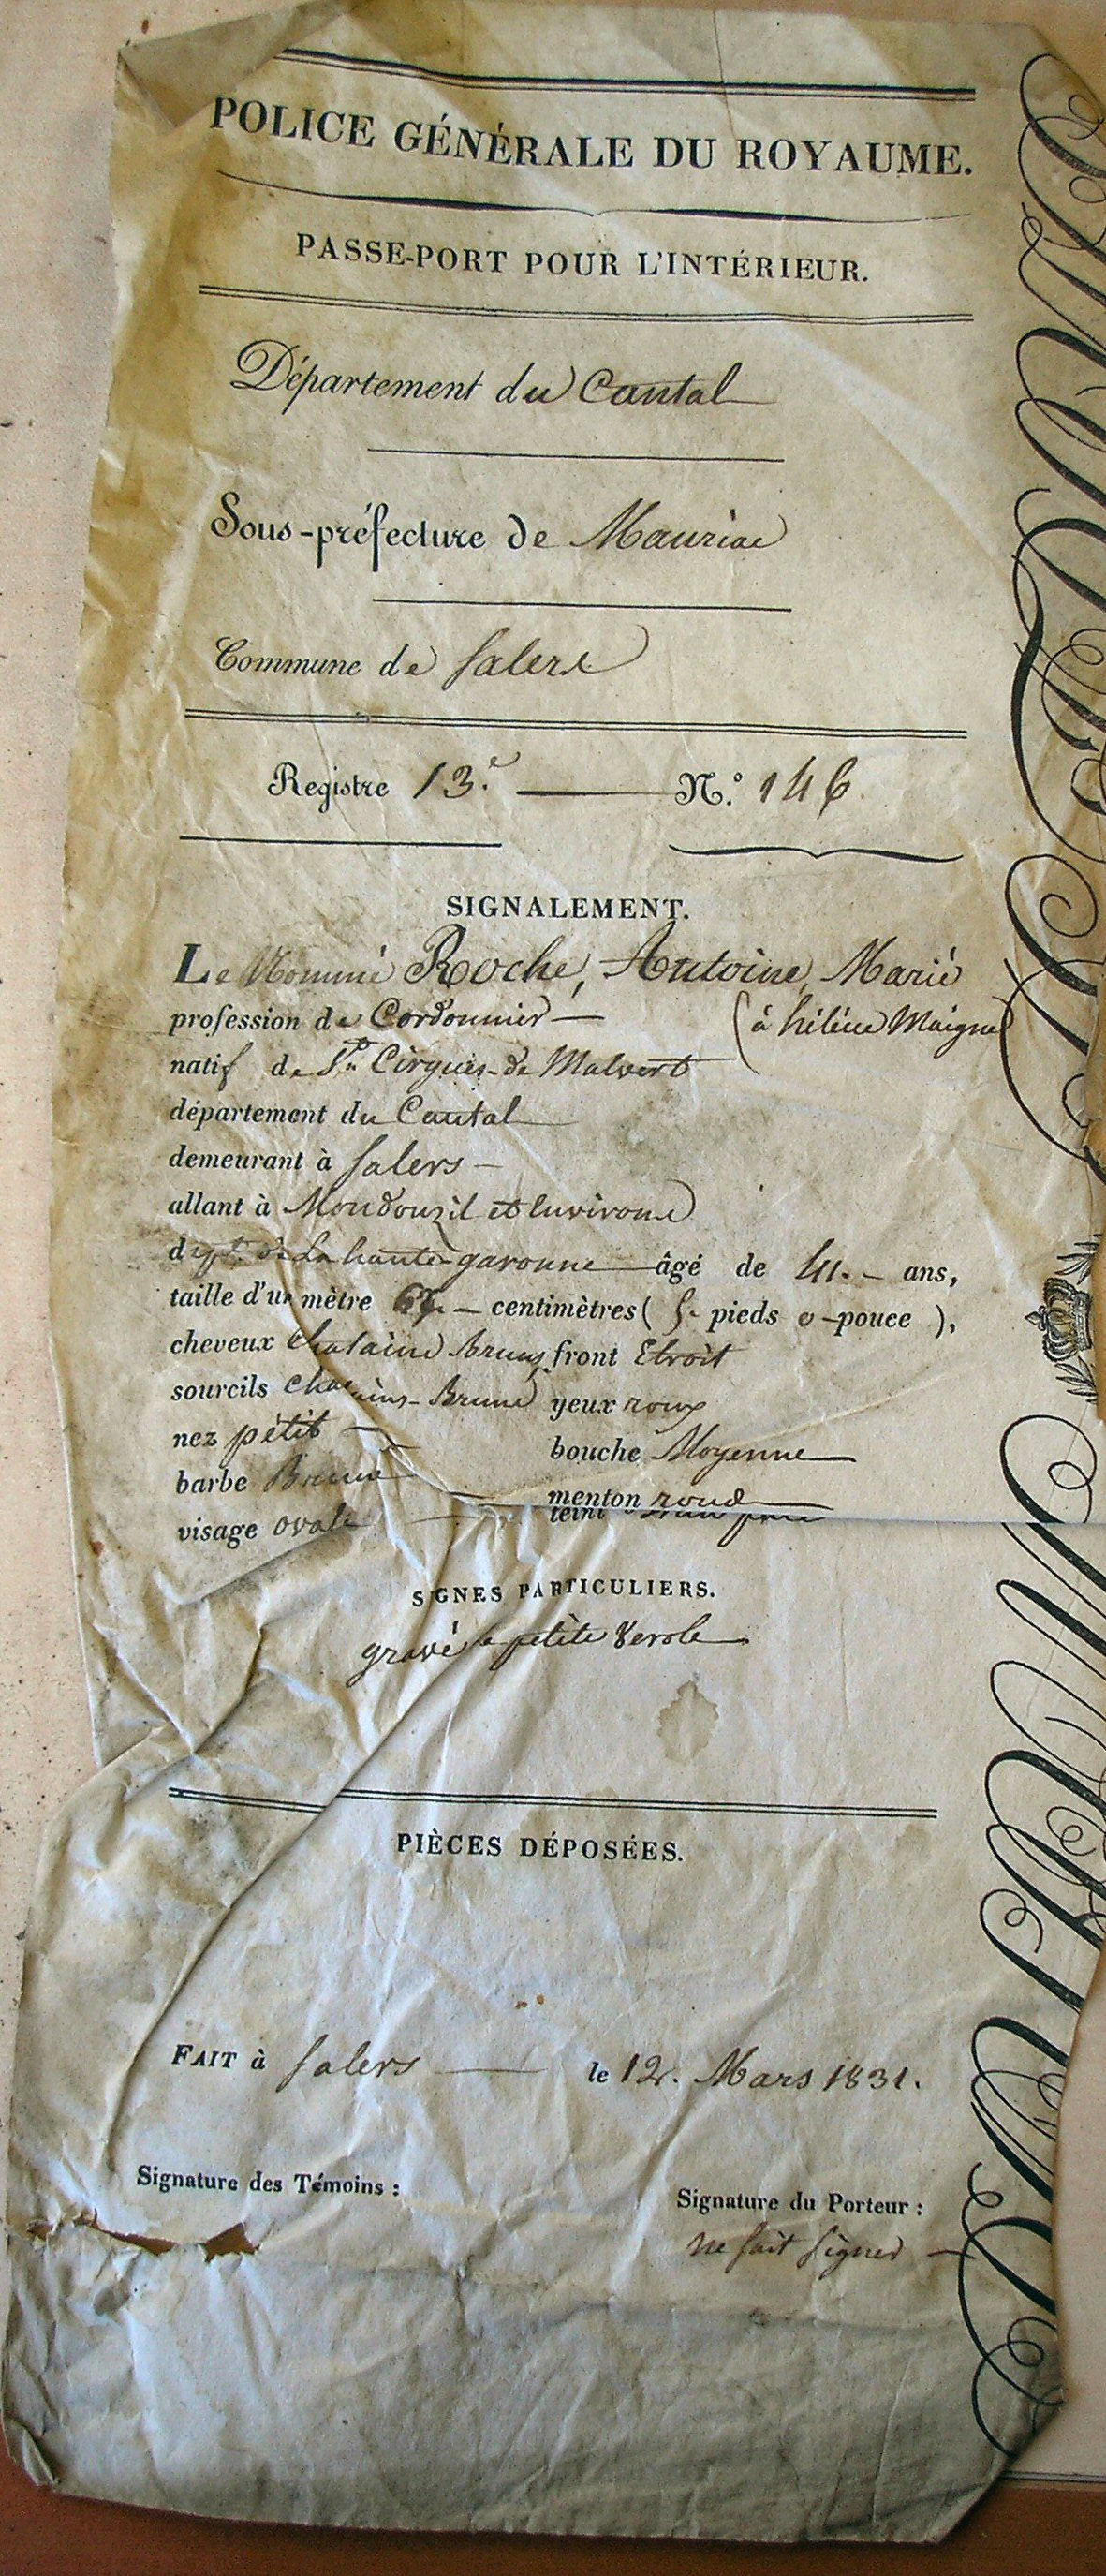 POLICE GÉNÉRALE DU ROYAUME.
PASSE-PORT POUR L'INTÉRIEUR.
Département du Cantal
Sous-préfecture de Mauriac
Commune de Salers
Registre 13.e N.o 146.
SIGNALEMENT.
Le Nommé Roche, Antoine, Marié
profession de Cordonnier (à hélène Maigne)
natif de St. Cirgues-de Malvert
département du Cantal
demeurant à Salers
allant à Mondouzil et Environs
dept. de La haute garonne âgé de 41. ans,
taille d'un mètre centimètres (5. pieds 0 pouce),
cheveux Chatains Bruns front Etroit
sourcils Chatains-Bruns yeux roux
nez pétit bouche Moyenne
barbe Brune menton rond
visage ovale teint
SIGNES PARTICULIERS.
gravé de petite verole
PIÈCES DÉPOSÉES.
FAIT à Salers le 12. Mars 1831.
Signature des Témoins :
Signature du Porteur :
ne sait signer